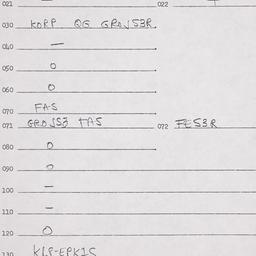 021 — 022
030 KORP OG GRONSER
040 —
050 O
060 O
070 FAS
071 GRONSJ FAS 072 FESER
080 O
090 O
100 —
110 —
120 O
130